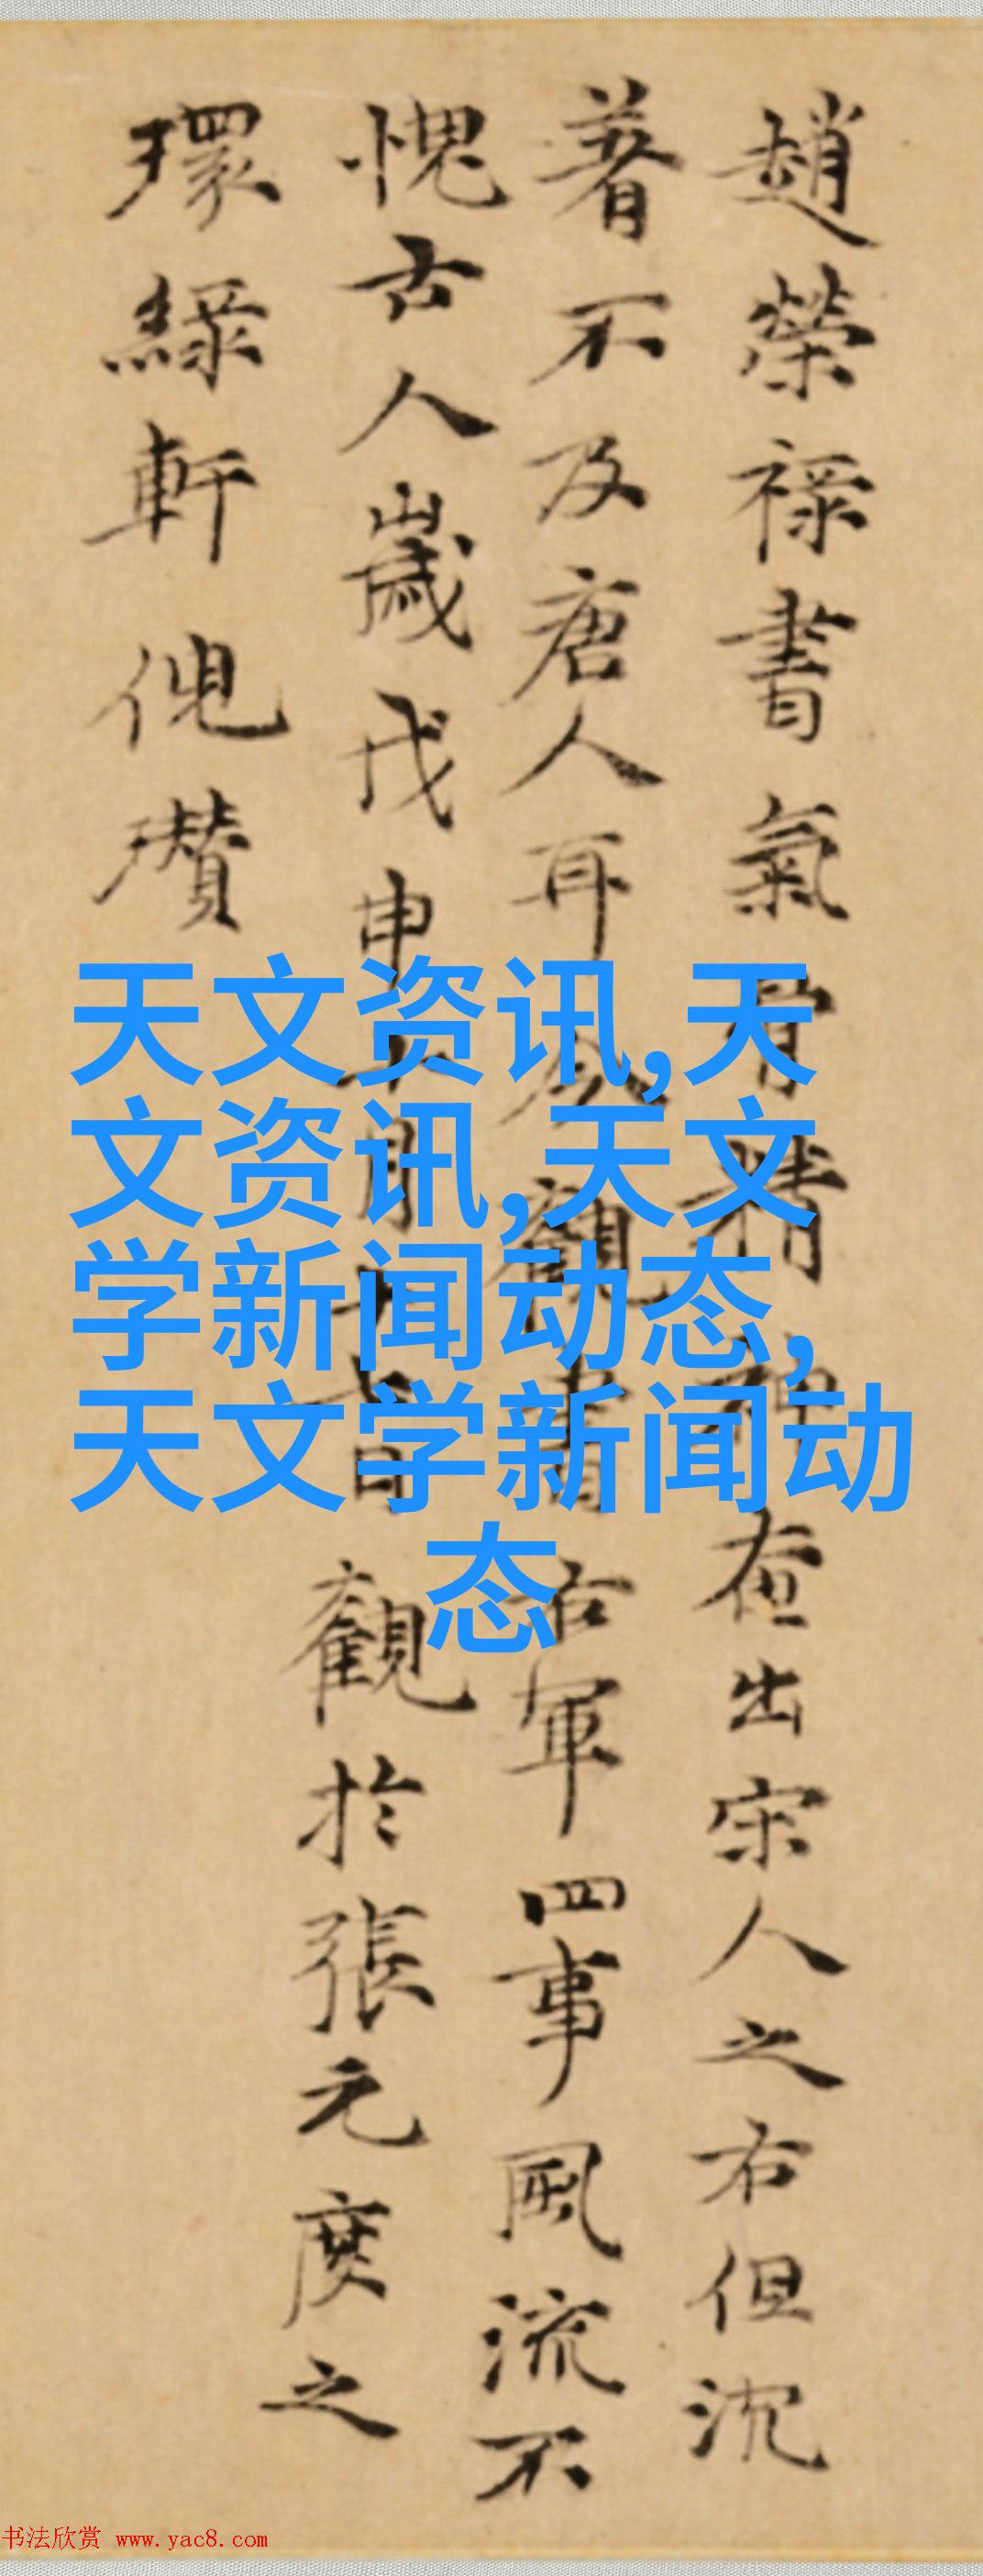 趙榮祿書氣骨精神在出宋人之右但沈
著不及唐人耳觀書右軍四事風流不
愧古人歲戊申十月十日觀於張元度之
環綠軒倪瓚
天文资讯,天
文资讯,天文
学新闻动态,
天文学新闻动
态
书法欣赏 www.yac8.com